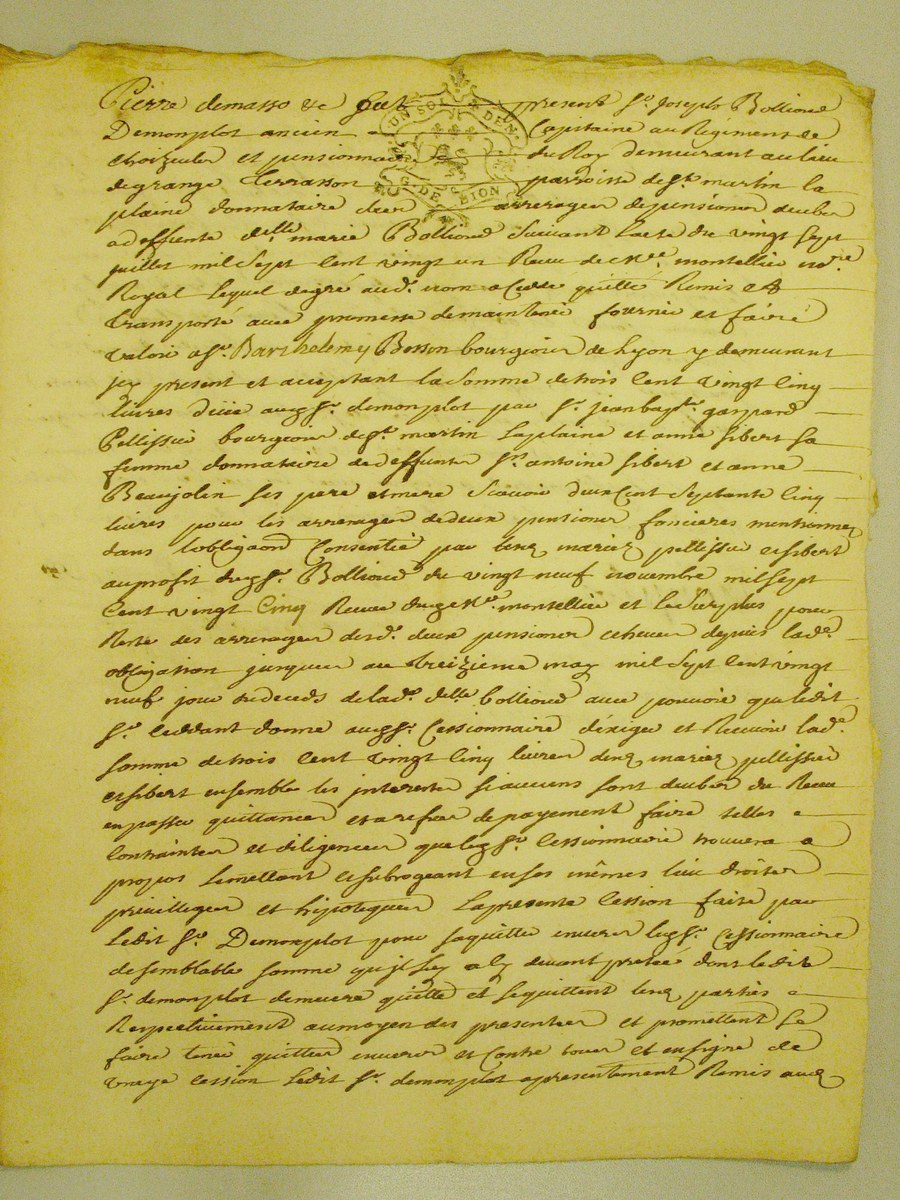 Pierre demasso &c fut present Sr. Joseph Bollioud
Demonplot ancien Capitaine au Regiment de
choizeuler et pensionnaire du Roy demeurant au lieu
de grange terrasson parroisse de st. martin la
plaine donnataire des arrerages de pension deube
a deffunte delle. marie Bollioud suivant lacte du vingt sept
juillet mil sept cent vingt un Receu de me. montellier nore.
Royal lequel de gré aud. nom a Cedé quitté Remis et
transporté avec promesse de maintenir fournir et faire
valoir a sr. Barthelemy Bessin bourgeois de Lyon y demeurant
jcy present et acceptant la somme de trois Cent vingt Cinq
livres düe aud sr. demonplot par sr. jean bapte. gaspard
Pellissier bourgeois de st. martin la plaine et anne sibert sa
femme donnataire de deffunts sr. antoine sibert et anne
Beaujolin ses pere et mere scavoir deux Cent septante Cinq
livres pour les arrerages de deux pensions foncieres mentionnées
dans lobligaon Consentie par les mariez pellissier et sibert
au profit dud sr. Bollioud du vingt neuf novembre mil sept
Cent vingt Cinq Receue me. montellier et le surplus pour
Reste des arrerages desd. deux pensions echeues depuis lade.
obligation jusques au treizieme may mil sept Cent vingt
neuf jour du deceds de lade. delle. bollioud avec pouvoir que ledit
sr. Ceddant donne aud sr. Cessionnaire dexiger et Recevoir lade.
somme de trois Cent vingt Cinq livres des mariez pellissier
et sibert ensemble les interests si aucuns sont deubs du Receu
en passer quittances et a refus de payement faire telles
Contraintes et diligences que led sr. Cessionnaire trouvera a
propos le mettant et subrogeant en ses mêmes lieu droits
privilleges et hipoteques La presente Cession faite par
Ledit sr. Demonplot pour saquitter envers led sr. Cessionnaire
de semblable somme quil luy a Cy devant presté dont ledit
sr. demonplot demeure quitte et se quittent les parties
Respectivement au moyen des presentes et promettent se
faire tenir quittes envers et Contre tous et en signe de
vraye Cession Ledit sr. demonplot a presentement Remis aud
UN SOL
DEN.
G. DE
LION